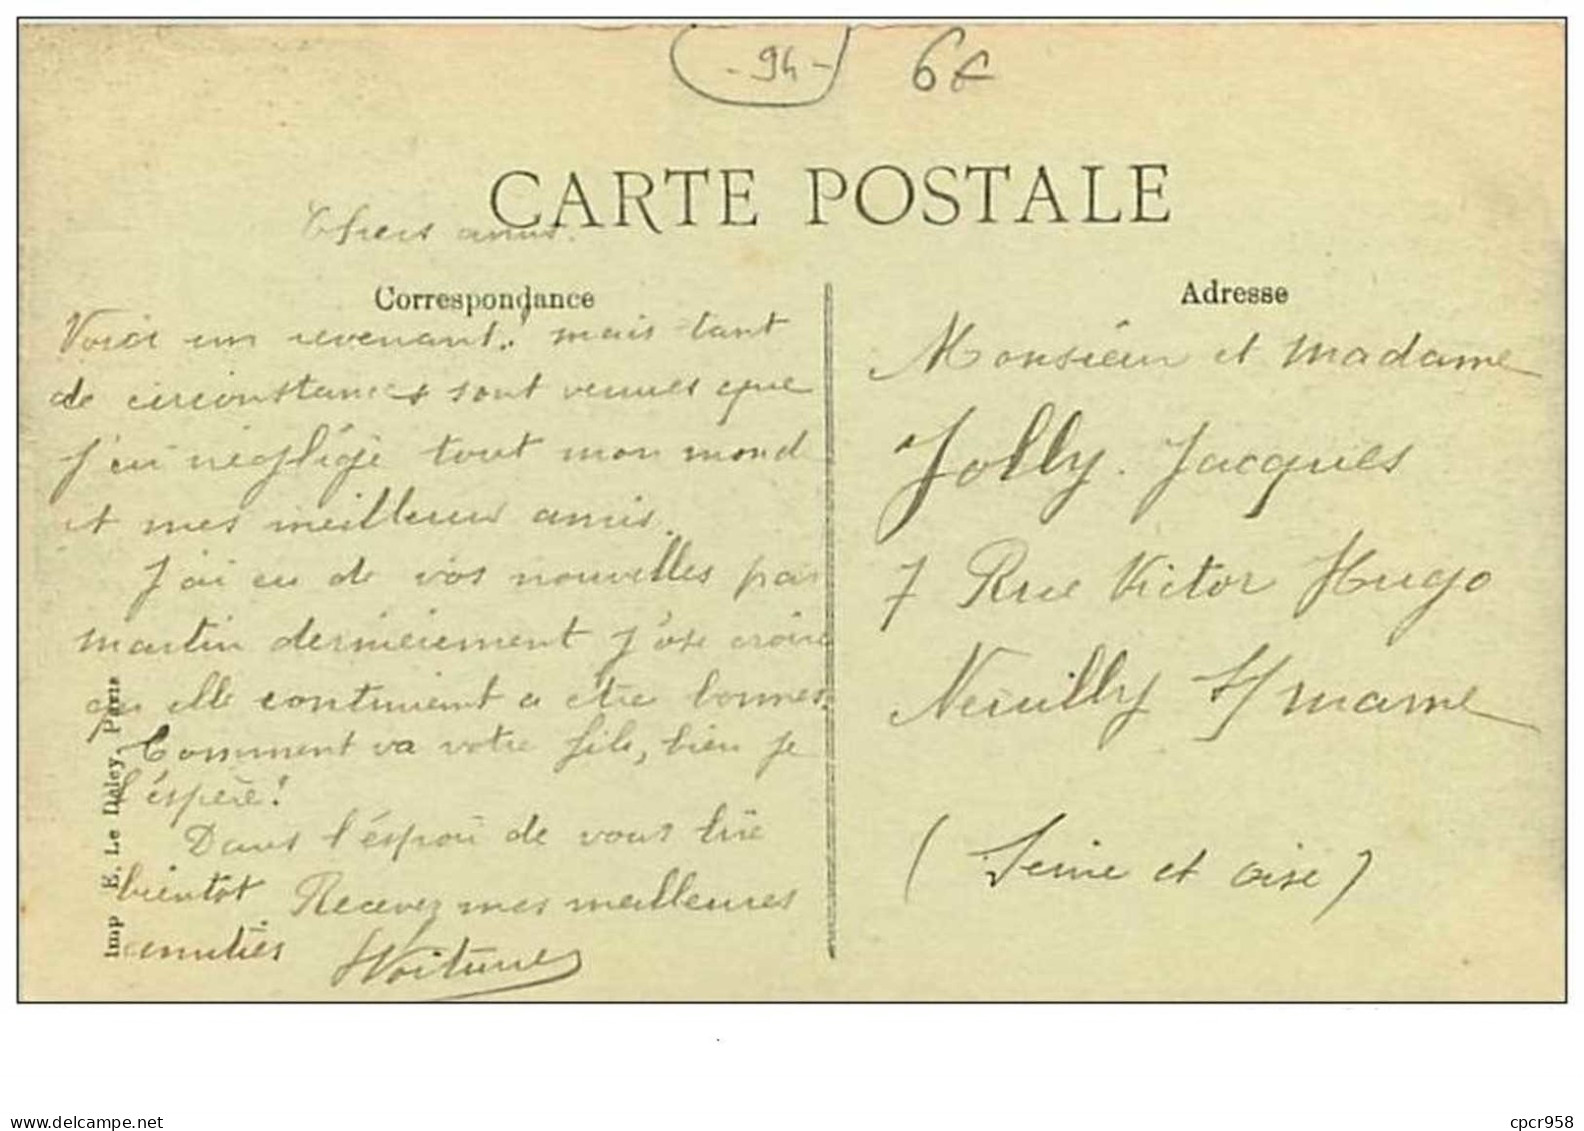 - 94 -
6€
CARTE POSTALE
Chers amis.
Correspondance
Voici un revenant. mais tant
de circonstances sont venues que
j'ai négligé tout mon mond
et mes meilleurs amis.
J'ai eu de vos nouvelles par
martin dernièrement j'ose croire
qu elle continuent a etre bonnes.
Comment va votre fils, bien je
l'éspère!
Dans l'éspoir de vous lire
bientot Recevez mes meilleures
amitiés
Imp E. Le Deley, Paris
Adresse
Monsieur et madame
Jolly. Jacques
7 Rue Victor Hugo
Neuilly S/ marne
(Seine et oise)
cpcr958
www.delcampe.net